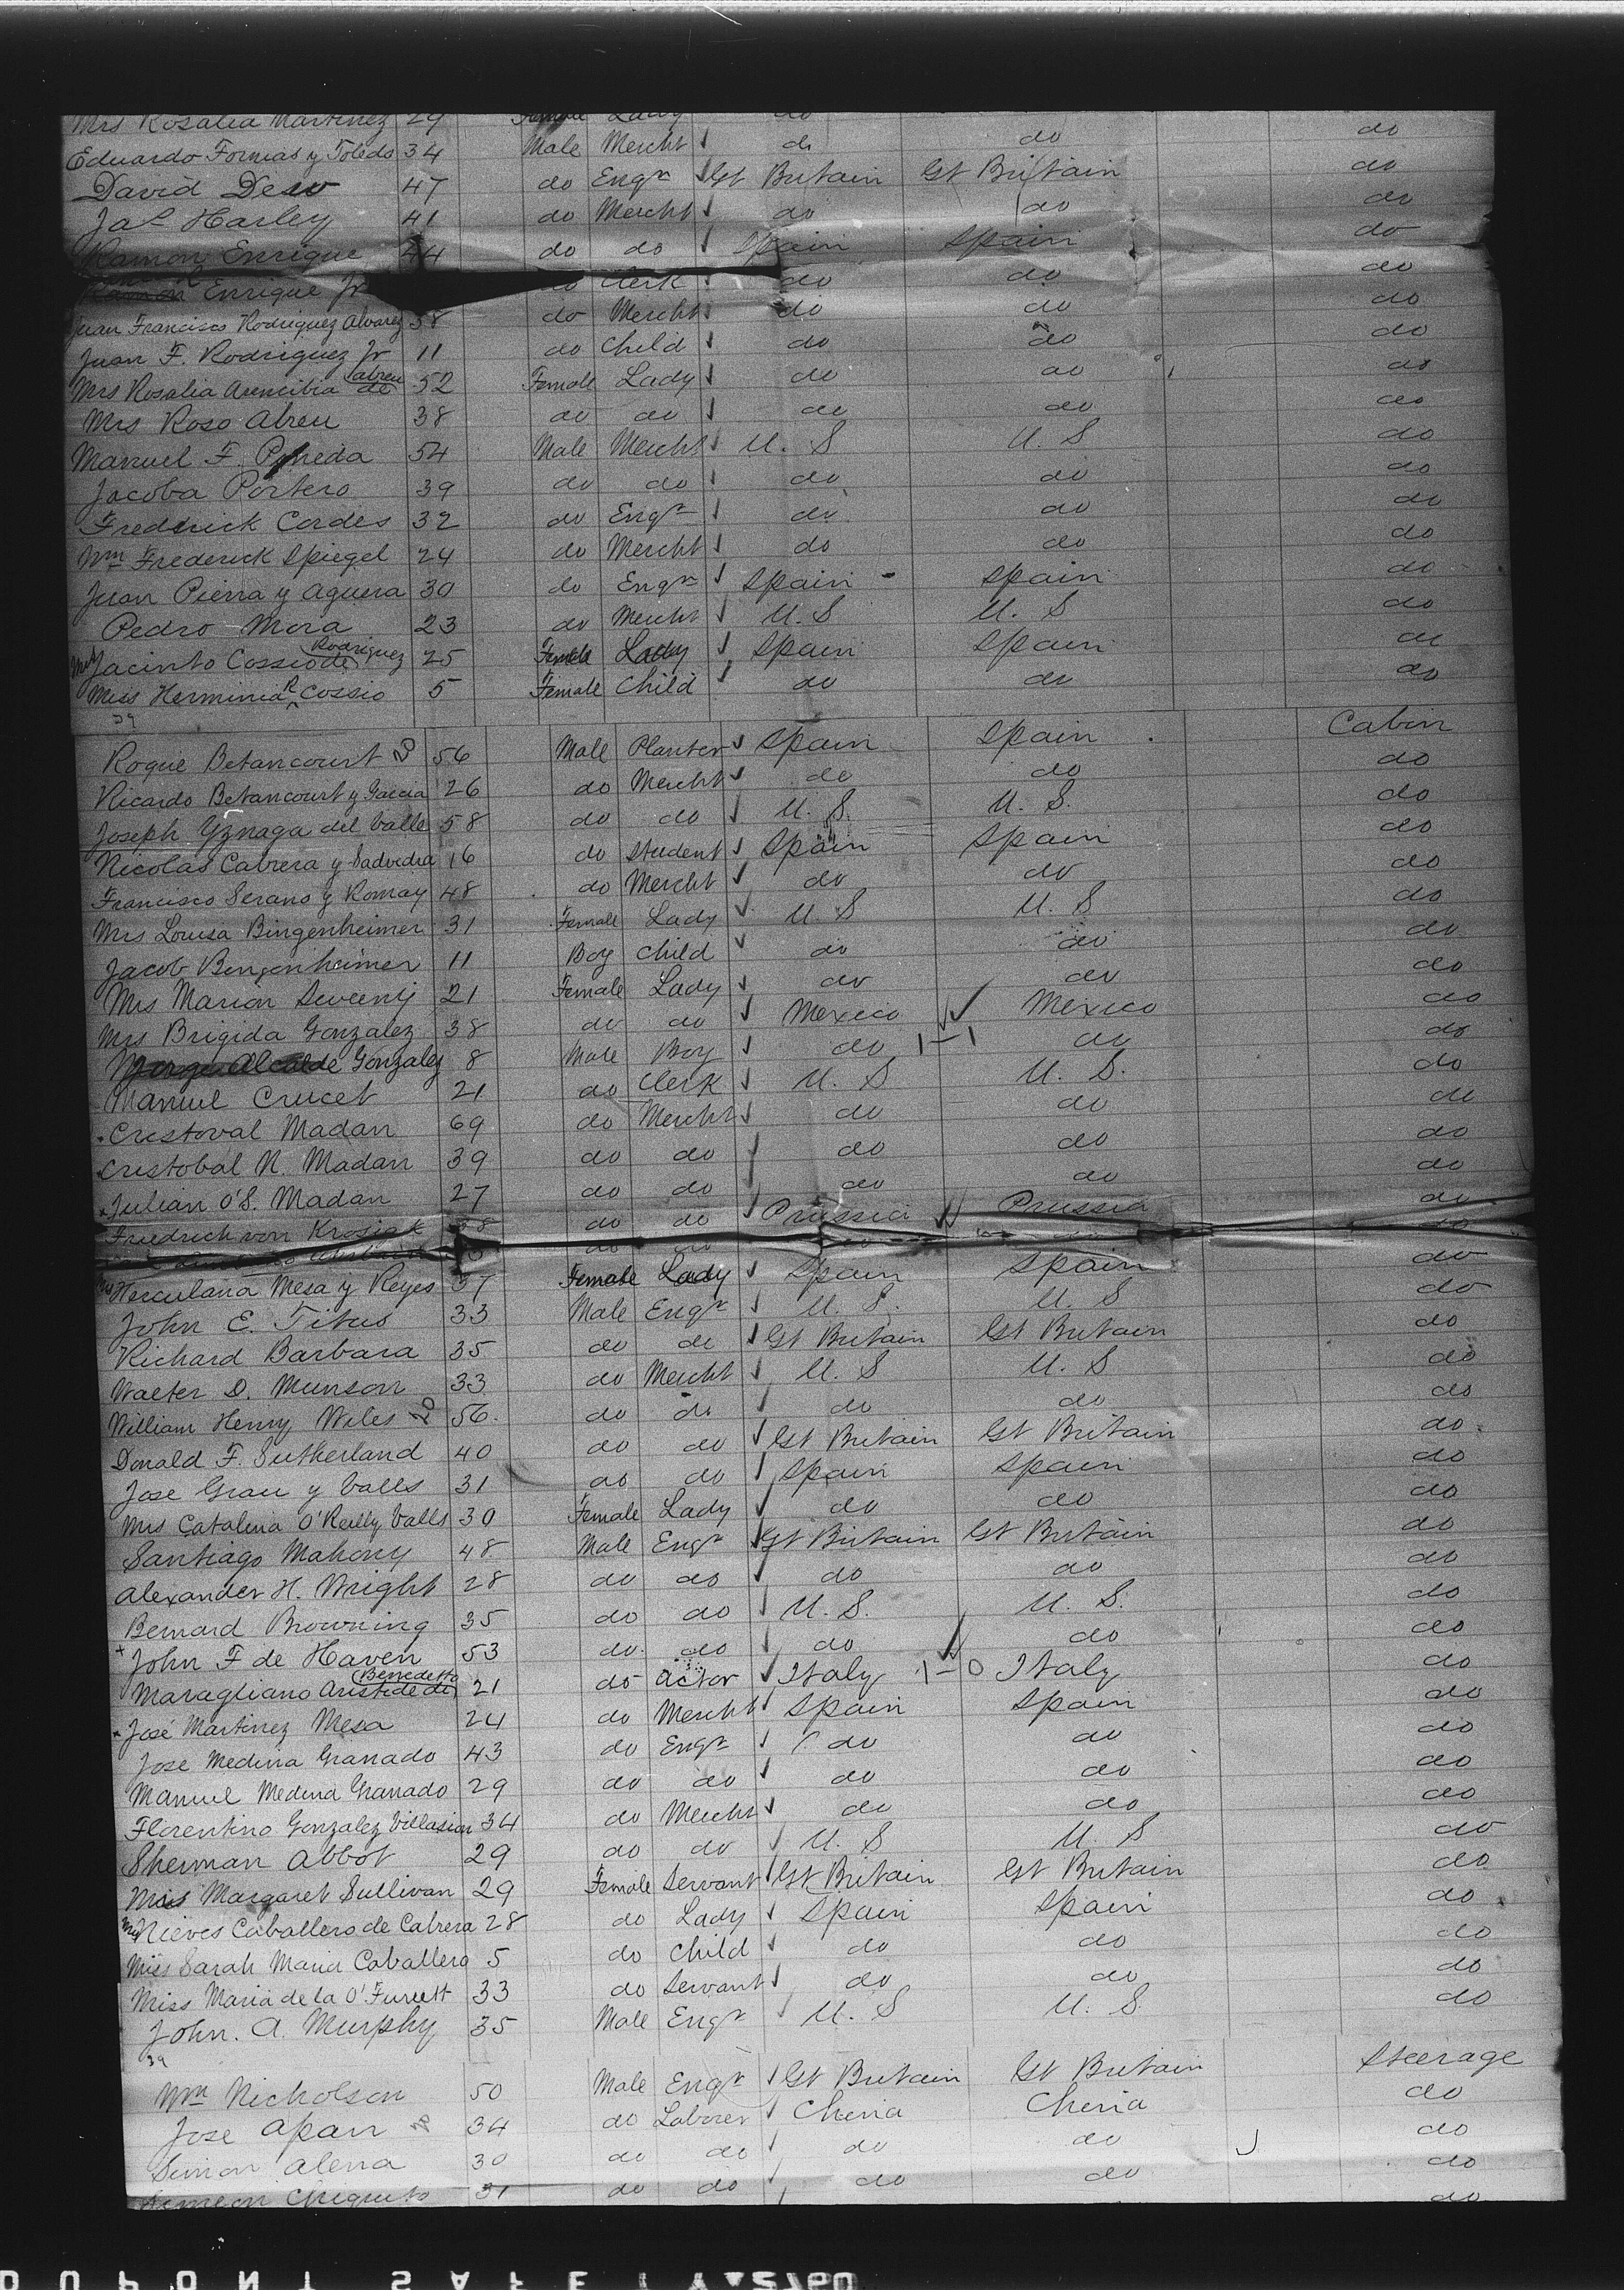 Mrs Rosalia Martinez 29 Female Lady do
Eduardo Formas y Toledo 34 Male Mercht do do do
David Dew 47 do Engr Gt Britain Gt Britain do
Jas Harley 41 do Mercht do do do
Ramon Enrique 44 do do Spain Spain do
Enrique Jr do Clerk do do do
Juan Francisco Rodriguez Alvarez 38 do Mercht do do do
Juan F. Rodriguez Jr 11 do Child do do do
Mrs Rosalia Arencibia de Abreu 52 Female Lady do do do
Mrs Rosa Abreu 38 do do do do do
Manuel F. Pineda 54 Male Mercht U. S U. S do
Jacoba Portero 39 do do do do do
Frederick Cordes 32 do Engr do do do
Wm Frederick Spiegel 24 do Mercht do do do
Juan Pierra y Aguera 30 do Engr Spain Spain do
Pedro Mora 23 do Mercht U. S U. S do
Mrs Jacinto Cossio de Rodriguez 25 Female Lady Spain Spain do
Miss Herminia R Cossio 5 Female Child do do do
39
Roque Betancourt 56 Male Planter Spain Spain Cabin
Ricardo Betancourt y Garcia 26 do Mercht do do do
Joseph Yznaga del Valle 58 do do U. S. U. S. do
Nicolas Cabrera y Sadvedra 16 do Student Spain Spain do
Francisco Serano y Romay 48 do Mercht do do do
Mrs Louisa Bingenheimer 31 Female Lady U. S U. S do
Jacob Bingenheimer 11 Boy Child do do do
Mrs Marion Sweeny 21 Female Lady do do do
Mrs Brigida Gonzalez 38 do do Mexico Mexico do
Jorge Alcalde Gonzalez 8 Male Boy do 1-1 do do
Manuel Crucet 21 do Clerk U. S U. S. do
Cristoval Madan 69 do Mercht do do do
Cristobal N. Madan 39 do do do do do
Julian O'S. Madan 27 do do do do do
Friedrich von Krosigk 38 do do Prussia Prussia do
do do do do
Mrs Herculana Mesa y Reyes 37 Female Lady Spain Spain do
John E. Titus 33 Male Engr U. S. U. S do
Richard Barbara 35 do do Gt Britain Gt Britain do
Walter D. Munson 33 do Mercht U. S U. S do
William Henry Wiles 56. do do do do do
Donald F. Sutherland 40 do do Gt Britain Gt Britain do
Jose Grau y Valls 31 do do Spain Spain do
Mrs Catalina O'Reilly Valls 30 Female Lady do do do
Santiago Mahony 48 Male Engr Gt Britain Gt Britain do
Alexander H. Wright 28 do do do do do
Bernard Browning 35 do do U. S. U. S. do
John F de Haven 53 do do do do do
Maragliano Aristide di Benedetto 21 do Actor Italy 1-0 Italy do
José Martinez Mesa 24 do Mercht Spain Spain do
Jose Medina Granado 43 do Engr do do do
Manuel Medina Granado 29 do do do do do
Florentino Gonzalez Villasion 34 do Mercht do do do
Sherman Abbot 29 do do U. S U. S do
Miss Margaret Sullivan 29 Female Servant Gt Britain Gt Britain do
Mrs Nieves Caballero de Cabrera 28 do Lady Spain Spain do
Miss Sarah Maria Caballero 5 do Child do do do
Miss Maria de la O' 33 do Servant do do do
John. A. Murphy 35 Male Engr U. S U. S. do
39
Wm Nicholson 50 Male Engr Gt Britain Gt Britain Steerage
Jose Apan 34 do Laborer China China do
Simon Alena 30 do do do do do
Simeon Chiquito 31 do do do do do
do
DUPONT SAFETY